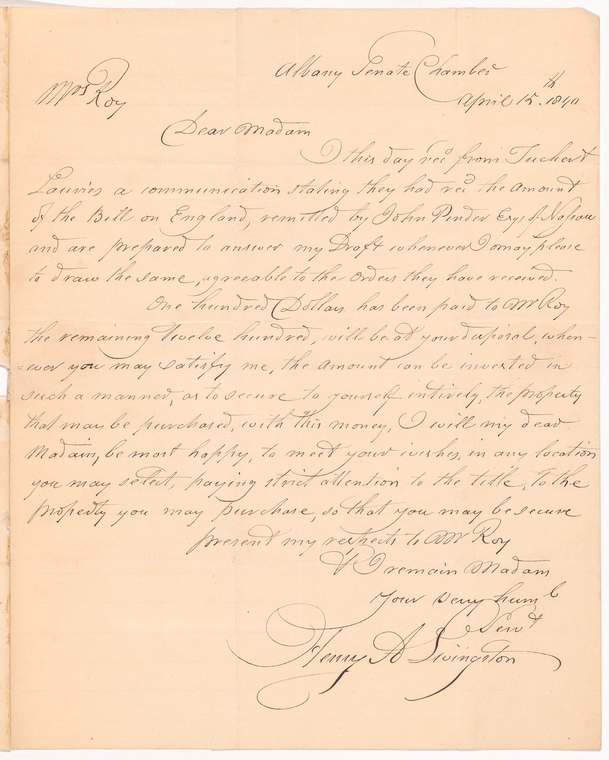 Albany Senate Chamber
April 15th. 1840
Mrs Roy
Dear Madam
I this day recd from Tucker &
Lauries a communication stating they had recd the amount
of the Bill on England, remitted by John Pinder Esq of Nassau
and are prepared to answer my Draft whenever I may please
to draw the same, agreeable to the orders they have received.
One hundred Dollars has been paid to Mr Roy
the remaining twelve hundred, will be at your disposal, when-
=ever you may satisfy me, the amount can be invested in
such a manner, as to secure to yourself intirely, the property
that may be purchased, with this money, I will my dear
Madam, be most happy, to meet your wishes, in any location
you may select, paying strict attention to the title, to the
property you may purchase, so that you may be secure
present my respects to Mr Roy
& I remain Madam
your very humb
Servt
Henry A Livingston